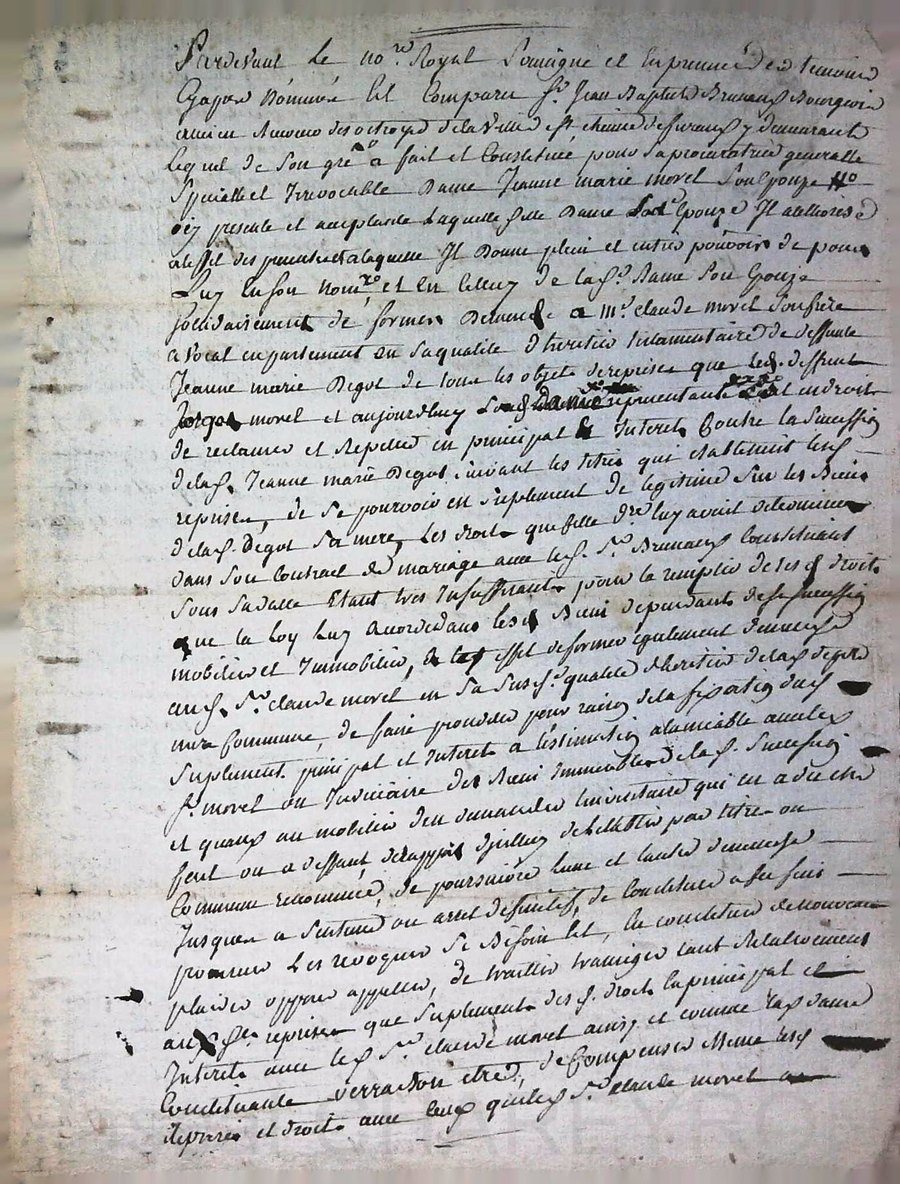 Pardevant Le no.re Royal Soussigné et En presence des temoins
Bas nommés Est Comparu Sr. Jean Baptiste Bruneaux Bourgeois
des octroyes de la Ville de St chaumé y demeurant
Lequel de Son gré a fait et Constitué pour Sa procuratrice generalle
Specialle et Irrevocable Dame Jeanne marie morel Son Epouze
icy presente et acceptante Laquelle dite Dame Son Epouze Il authorise
a l'effet des presentes et a laquelle Il Donne plein et entier pouvoir de pour
Luy En Son nom, et En Celuy de lad. Dame Son Epouze
Solidairement de former Demande a Mr. claude morel Son frere
avocat en parlement en Sa qualité d'heritier testamentaire de deffunte
Jeanne marie Degot de tous les objets de reprises que led. deffunt
morel et aujourd'huy representants est en droit
de reclamer et Repeter en principal & Interets Contre la Succession
de lad. Jeanne marie Degot Suivant les titres qui etablissent les d.
reprises, de Se pourvoir en Suplement de legitime Sur les Biens
de lad. Degot Sa mere, Les droits que lad. Dme. luy avoit determiné
dans Son Contract de mariage avec led. Sr. Bruneaux Constituant
Sous Sa datte Etant tres Insuffisants pour la remplir de ses d. droits
que la Loy Luy accorde dans les d. Biens dependants de Succession
mobiliers et Immobiliers, a l'effet de former egalement demande
aud. Sr. claude morel en Sa Susd. qualité d'heritier de lad. degot
mere Commune, de faire proceder pour raison de la fixation dud.
Suplement principal et Interets a l'estimation a l'amiable avec led.
Sr. morel ou Judiciaire des Biens Immeubles de lad. Succession
et quant au mobilier d'en demander l'inventaire qui en a du etre
fait ou a deffaut de l'etablir par titre ou
Commune renommée, de poursuivre l'une et l'autre demande
Jusques a Sentence ou arret definitif, de Constituer a Ses fins
procureur Les revoquer Si Besoin Est, En constituer de nouveau
plaider opposer appeller, de traitter transiger tant Relativement
auxd. reprises que Suplement des d. droits en principal et
Interets avec led. Sr. claude morel ainsy et comme lad. dame
Constituante verra bon etre, de Compenser Meme les d.
reprises et droits avec Ceux que led. Sr. claude morel a